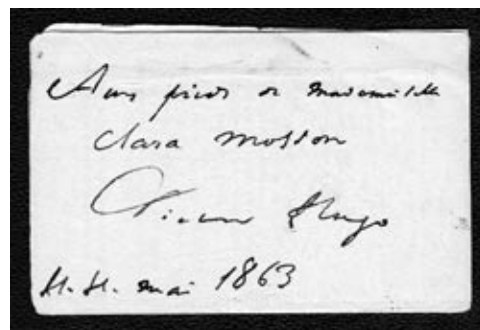 Aux pieds de Mademoiselle
Clara
Victor Hugo
H. H. mai 1863